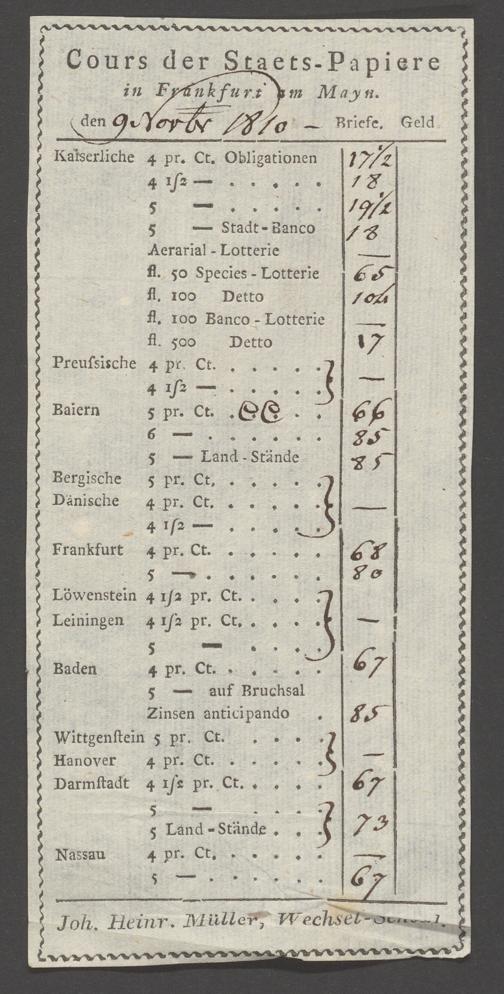 Cours der Staets-Papiere
in Frankfurt am Mayn.
den 9 Novbr 1810 – Briefe. Geld
Kaiserliche 4 pr. Ct. Obligationen 17 1/2
4 1ſ2 — . . . . . 18
5 — . . . . . 19 1/2
5 — Stadt-Banco 18
Aerarial-Lotterie —
fl. 50 Species-Lotterie 65
fl. 100 Detto 104
fl. 100 Banco-Lotterie —
fl. 500 Detto 17
Preuſsische 4 pr. Ct. . . . . .
4 1ſ2 — . . . . . } —
Baiern 5 pr. Ct. . . . 66
6 — . . . . . . 85
5 — Land-Stände 85
Bergische 5 pr. Ct. . . . . .
Dänische 4 pr. Ct. . . . . . } —
4 1ſ2 — . . . . .
Frankfurt 4 pr. Ct. . . . . . 68
5 — . . . . . . 80
Löwenstein 4 1ſ2 pr. Ct. . . . .
Leiningen 4 1ſ2 pr. Ct. . . . . } —
5 — . . . .
Baden 4 pr. Ct. . . . . . 67
5 — auf Bruchsal
Zinsen anticipando . 85
Wittgenſtein 5 pr. Ct. . . . .
Hanover 4 pr. Ct. . . . . . } —
Darmſtadt 4 1ſ2 pr. Ct. . . . . 67
5 — . . . .
5 Land-Stände . . . } 73
Nassau 4 pr. Ct. . . . . . —
5 — . . . . . . 67
Joh. Heinr. Müller, Wechsel-